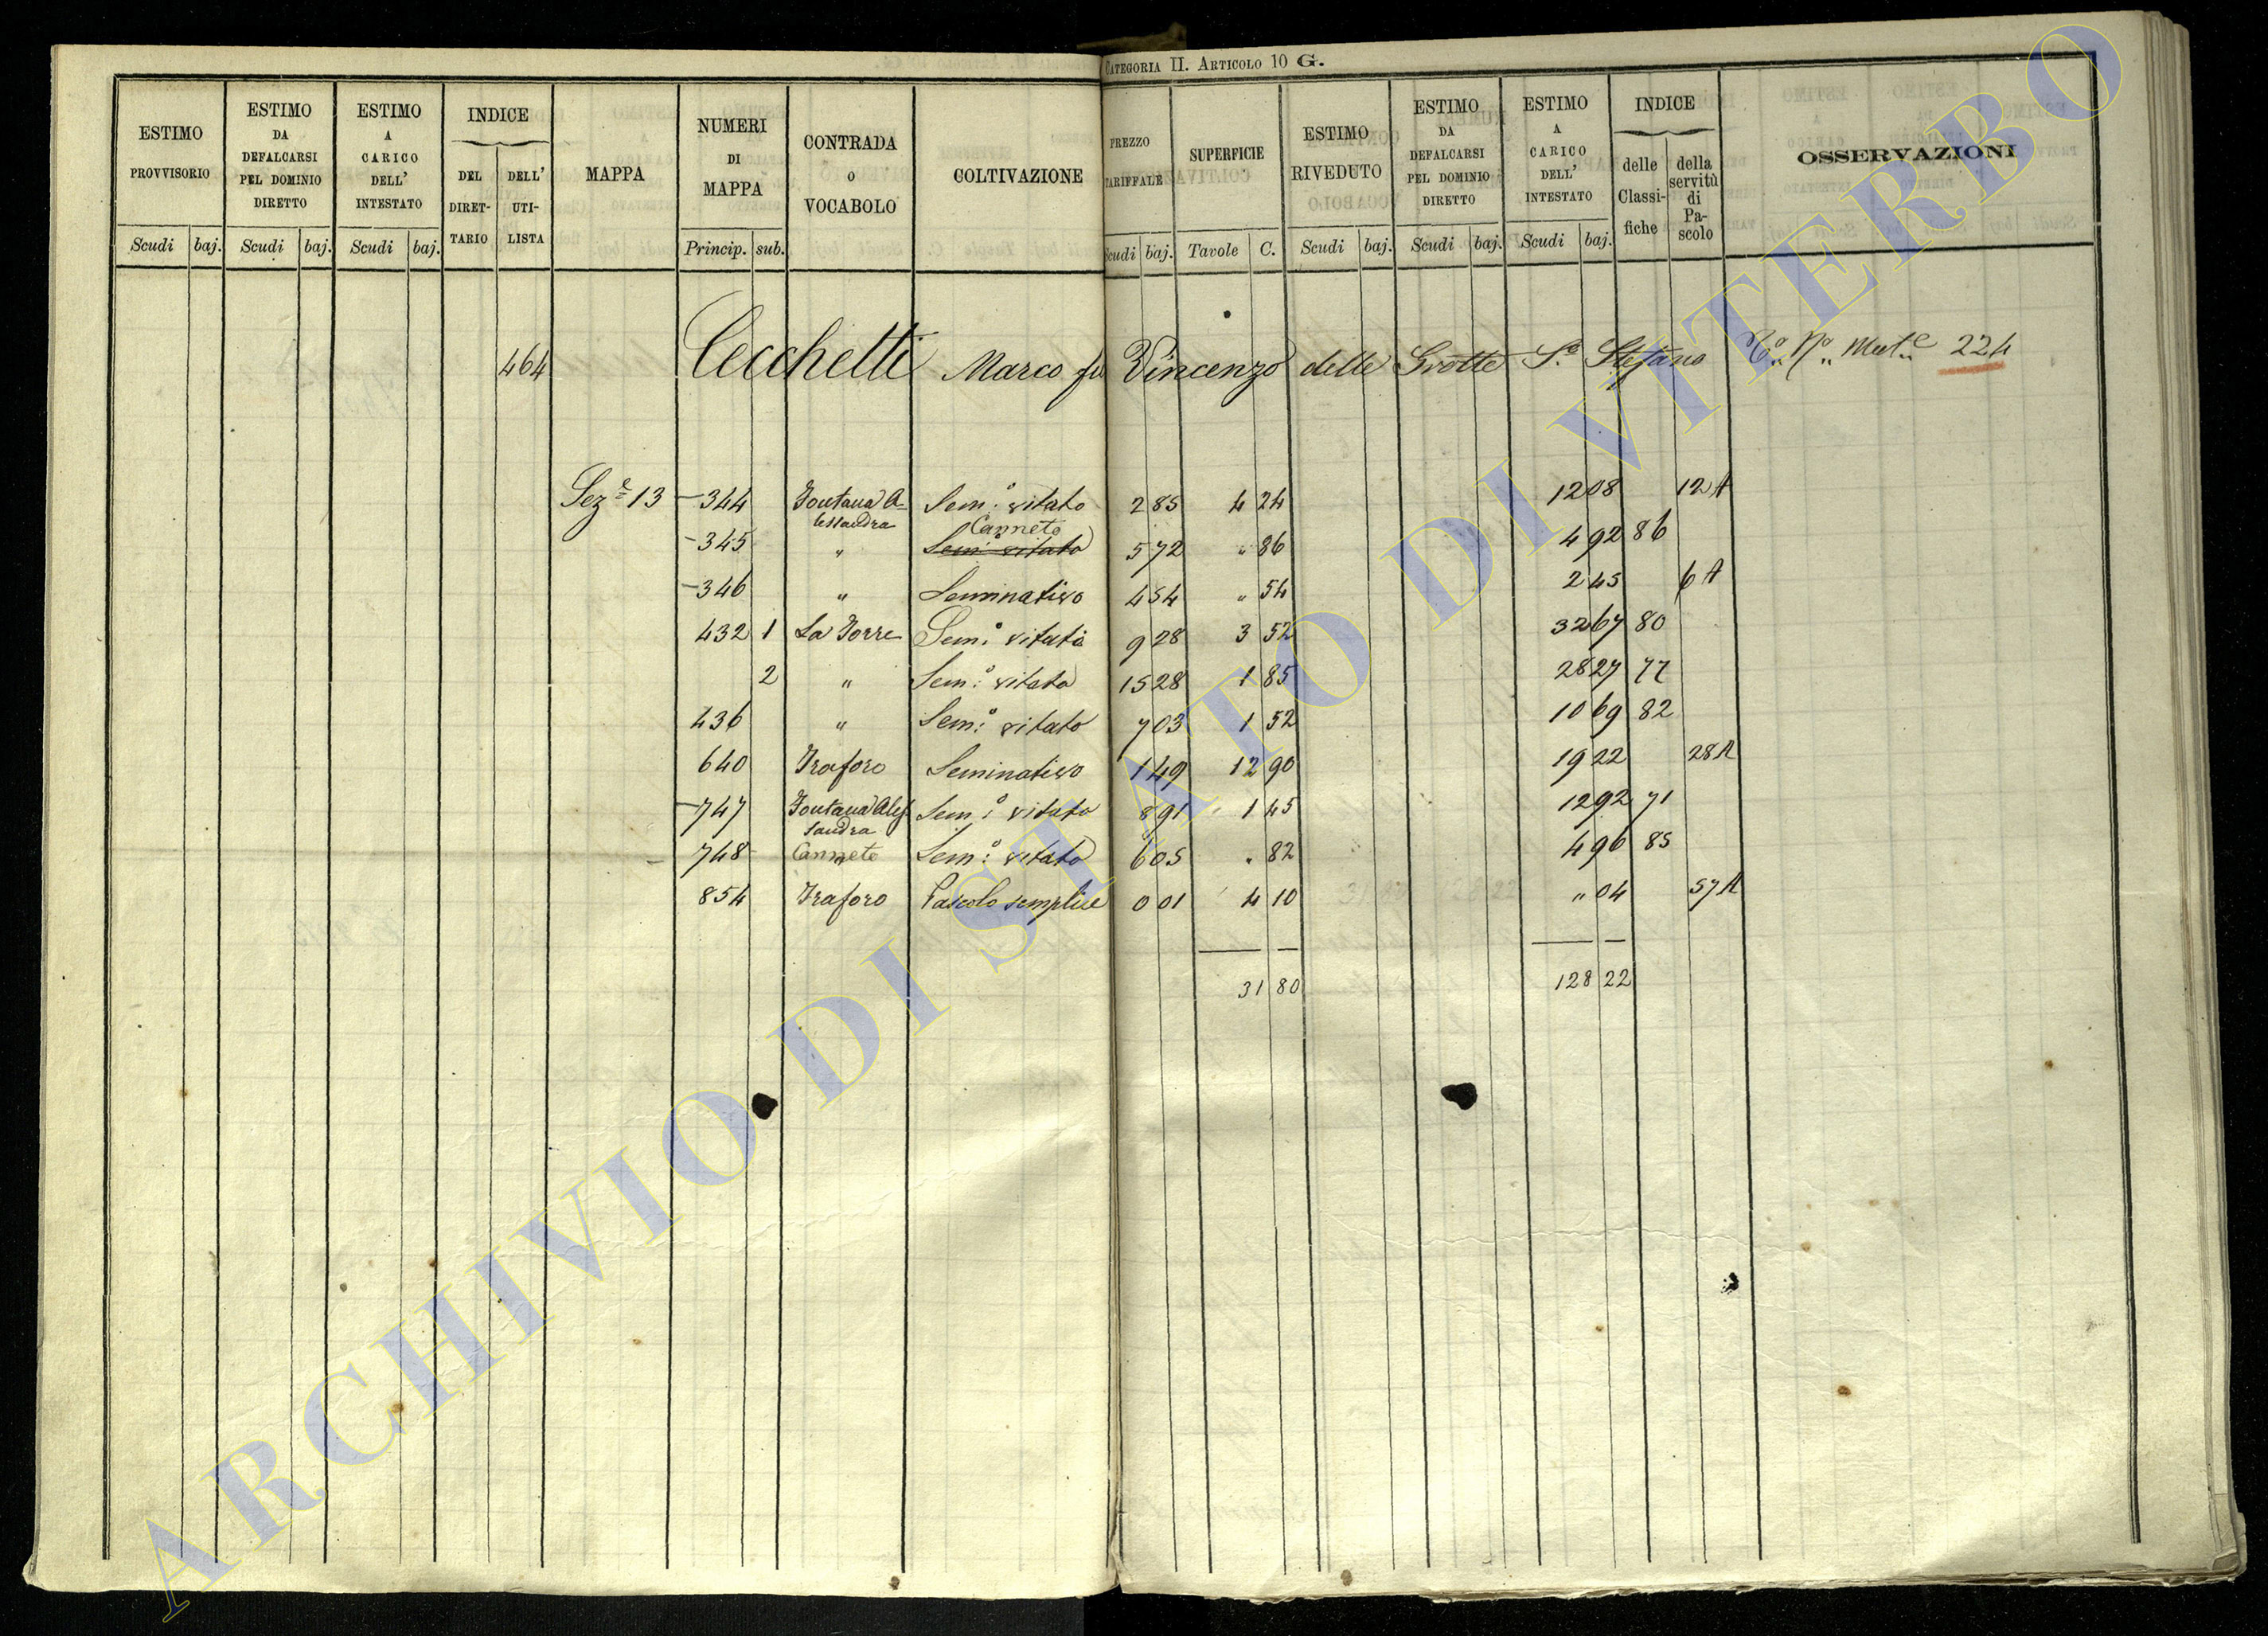 CATEGORIA II. ARTICOLO 10 G.
ESTIMO PROVVISORIO
ESTIMO DA DEFALCARSI PEL DOMINIO DIRETTO
ESTIMO A CARICO DELL' INTESTATO
INDICE
DEL DIRETTARIO
DELL' UTILISTA
MAPPA
NUMERI DI MAPPA
CONTRADA O VOCABOLO
COLTIVAZIONE
PREZZO TARIFFALE
SUPERFICIE
ESTIMO RIVEDUTO
ESTIMO DA DEFALCARSI PEL DOMINIO DIRETTO
ESTIMO A CARICO DELL' INTESTATO
INDICE
delle Classifiche
della servitù di Pascolo
OSSERVAZIONI
Scudi baj. Scudi baj. Scudi baj. Princip. sub. Scudi baj. Tavole C. Scudi baj. Scudi baj. Scudi baj.
464 Cecchetti Marco fu Vincenzo delle Grotte S. Stefano 224
Sez.e 13 344 Fontana Alessandra Sem.o vitato 2 85 4 24 12 08 12 A
345 " Canneto Sem.o vitato 5 72 " 86 4 92 86
346 " Seminativo 4 54 " 54 2 45 6 A
432 1 La Torre Sem.o vitato 9 28 3 52 32 67 80
2 " Sem.o vitato 15 28 1 85 28 27 77
436 " Sem.o vitato 7 03 1 52 10 69 82
640 Traforo Seminativo 1 49 12 90 19 22 28 A
747 Fontana Alessandra Sem.o vitato 8 91 1 45 12 92 71
748 Canneto Sem.o vitato 6 05 " 82 4 96 85
854 Traforo Pascolo semplice 0 01 4 10 " 04 57 A
31 80 128 22
ARCHIVIO DI STATO DI VITERBO